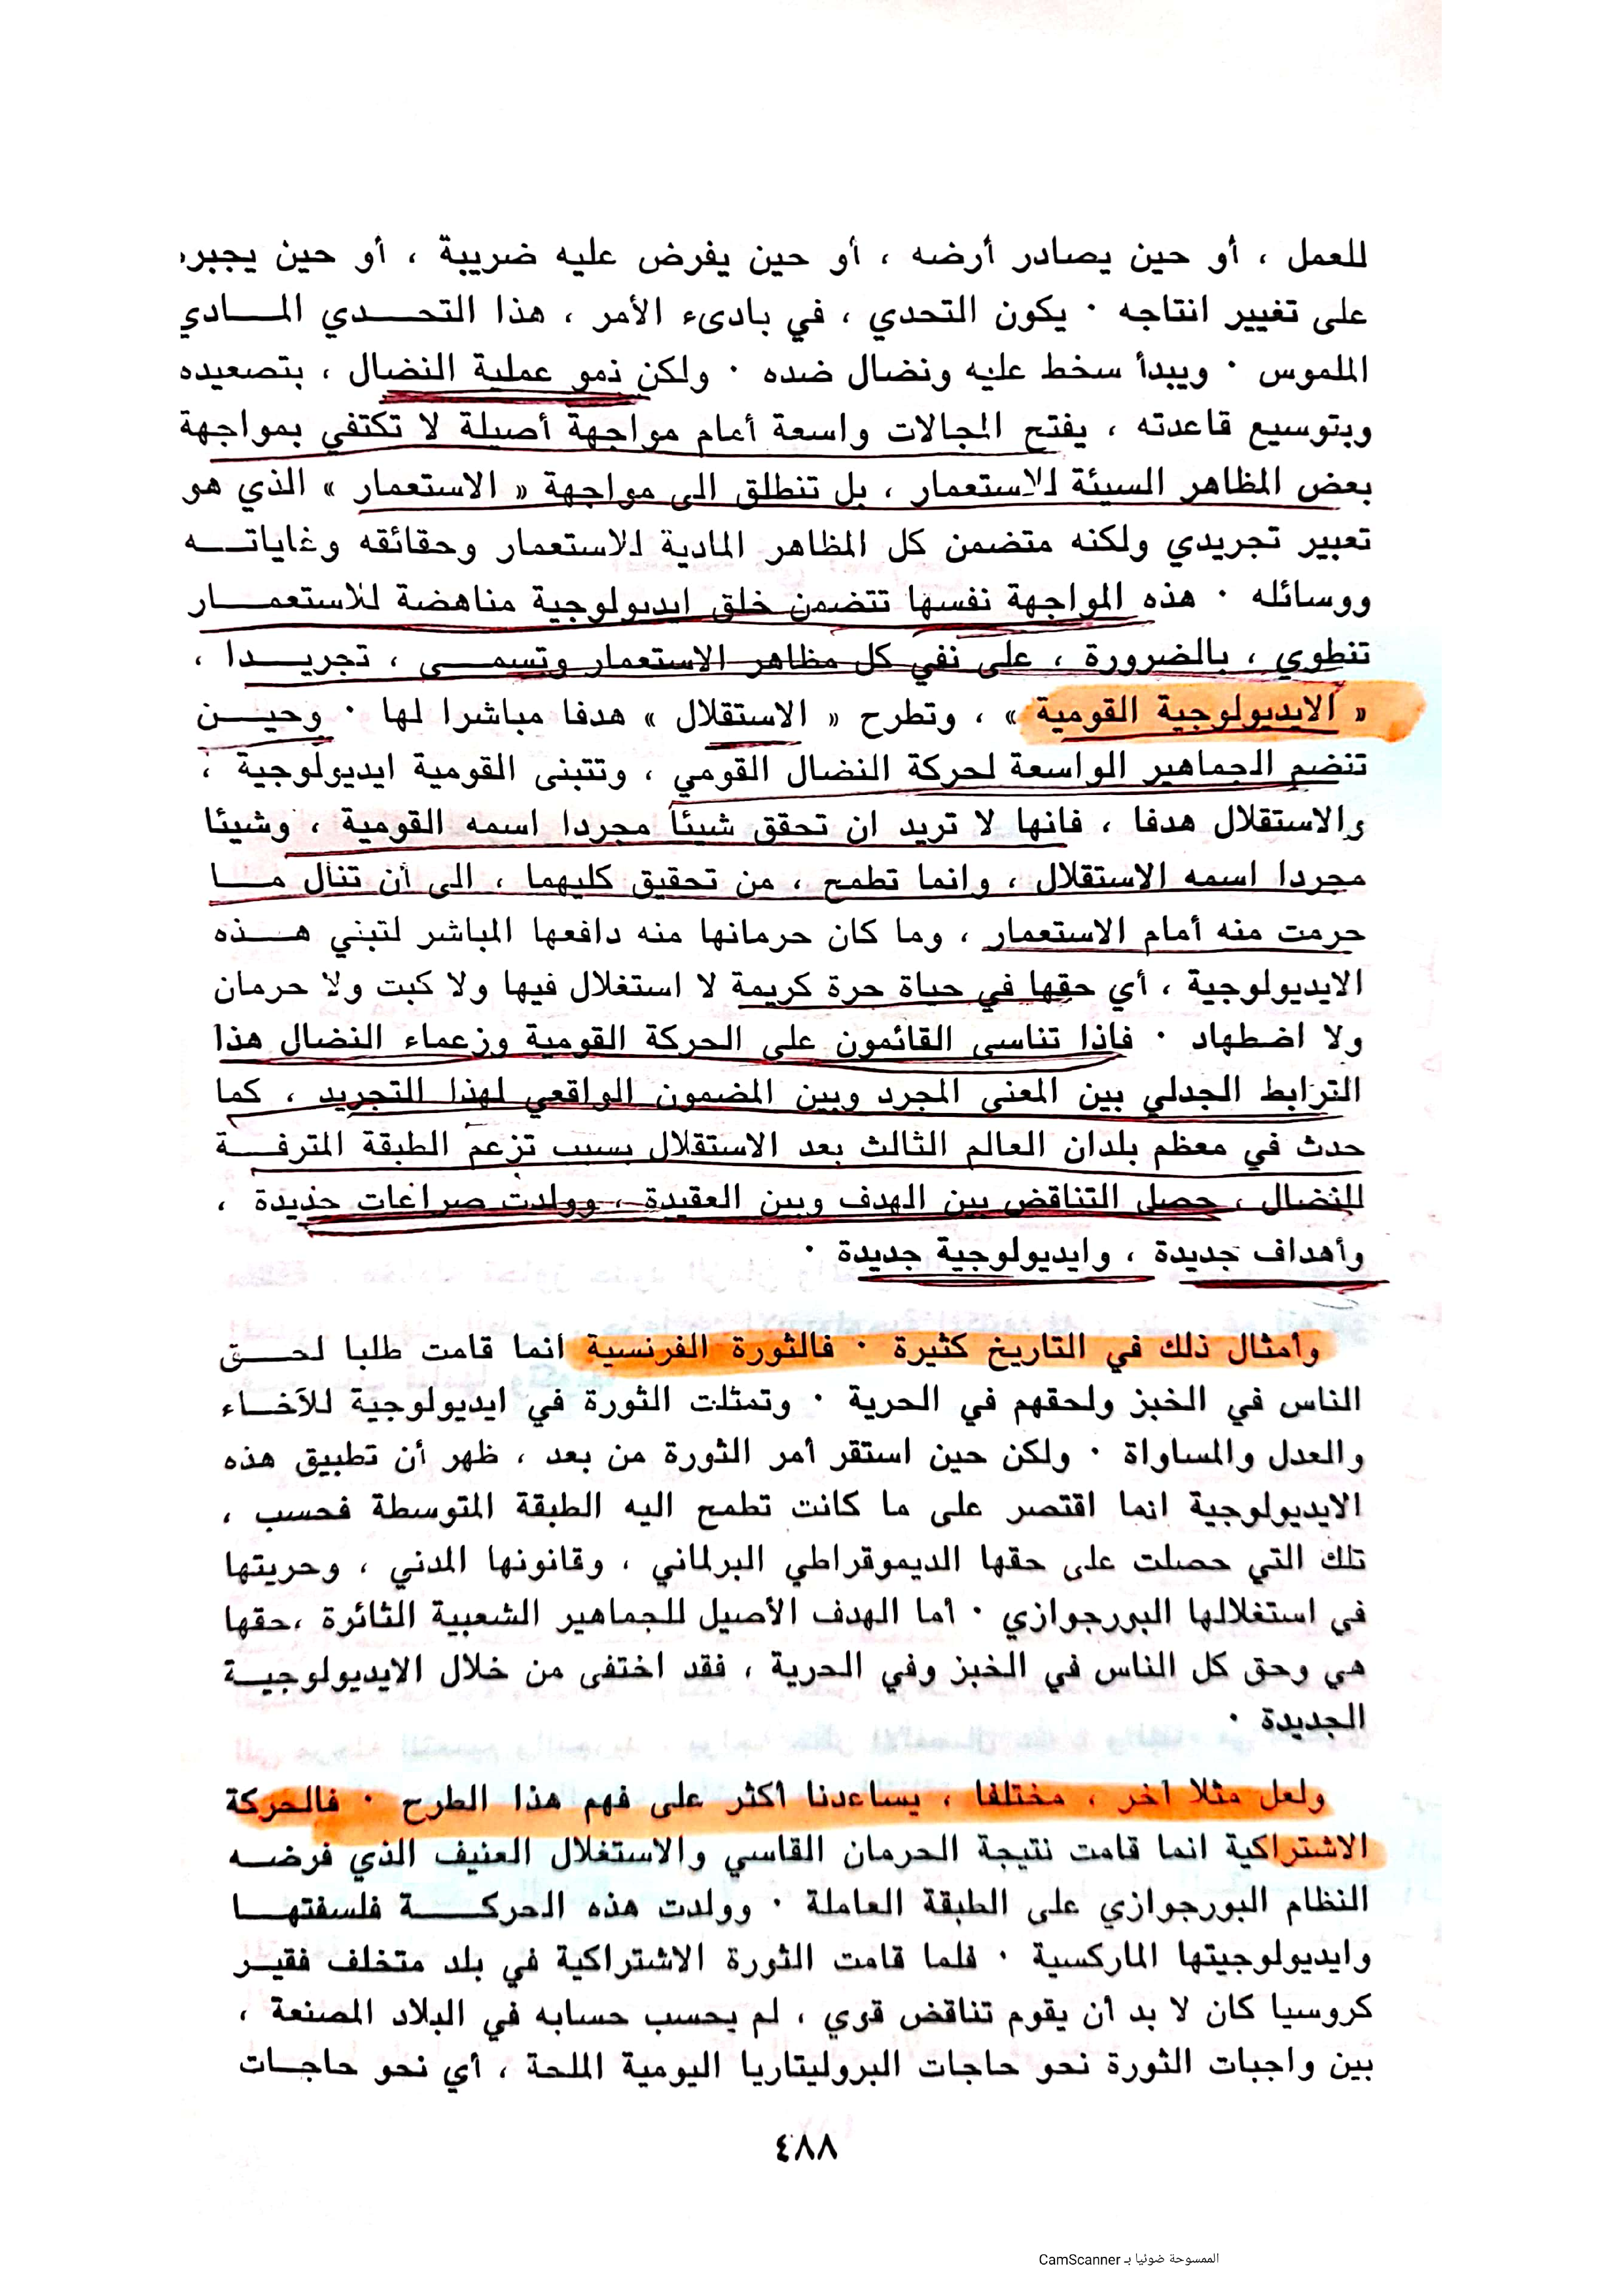 للعمل ، أو حين يصادر أرضه ، أو حين يفرض عليه ضريبة ، أو حين يجبره
على تغيير انتاجه ٠ يكون التحدي ، في بادىء الأمر ، هذا التحدي المادي
الملموس ٠ ويبدأ سخط عليه ونضال ضده ٠ ولكن نمو عملية النضال ، بتصعيده
وبتوسيع قاعدته ، يفتح المجالات واسعة أمام مواجهة أصيلة لا تكتفي بمواجهة
بعض المظاهر السيئة للاستعمار ، بل تنطلق الى مواجهة « الاستعمار » الذي هو
تعبير تجريدي ولكنه متضمن كل المظاهر المادية للاستعمار وحقائقه وغاياته
ووسائله ٠ هذه المواجهة نفسها تتضمن خلق ايديولوجية مناهضة للاستعمار
تنطوي ، بالضرورة ، على نفي كل مظاهر الاستعمار وتسمى ، تجريدا ،
« الايديولوجية القومية » ، وتطرح « الاستقلال » هدفا مباشرا لها ٠ وحين
تنضم الجماهير الواسعة لحركة النضال القومي ، وتتبنى القومية ايديولوجية ،
والاستقلال هدفا ، فانها لا تريد ان تحقق شيئا مجردا اسمه القومية ، وشيئا
مجردا اسمه الاستقلال ، وانما تطمح ، من تحقيق كليهما ، الى أن تنال ما
حرمت منه أمام الاستعمار ، وما كان حرمانها منه دافعها المباشر لتبني هذه
الايديولوجية ، أي حقها في حياة حرة كريمة لا استغلال فيها ولا كبت ولا حرمان
ولا اضطهاد ٠ فاذا تناسى القائمون على الحركة القومية وزعماء النضال هذا
الترابط الجدلي بين المعنى المجرد وبين المضمون الواقعي لهذا التجريد ، كما
حدث في معظم بلدان العالم الثالث بعد الاستقلال بسبب تزعم الطبقة المترفة
للنضال ، حصل التناقض بين الهدف وبين العقيدة ، وولدت صراعات جديدة ،
وأهداف جديدة ، وايديولوجية جديدة ٠
وأمثال ذلك في التاريخ كثيرة ٠ فالثورة الفرنسية انما قامت طلبا لحق
الناس في الخبز ولحقهم في الحرية ٠ وتمثلت الثورة في ايديولوجية للآخاء
والعدل والمساواة ٠ ولكن حين استقر أمر الثورة من بعد ، ظهر أن تطبيق هذه
الايديولوجية انما اقتصر على ما كانت تطمح اليه الطبقة المتوسطة فحسب ،
تلك التي حصلت على حقها الديموقراطي البرلماني ، وقانونها المدني ، وحريتها
في استغلالها البورجوازي ٠ أما الهدف الأصيل للجماهير الشعبية الثائرة ،حقها
هي وحق كل الناس في الخبز وفي الحرية ، فقد اختفى من خلال الايديولوجية
الجديدة ٠
ولعل مثلا آخر ، مختلفا ، يساعدنا أكثر على فهم هذا الطرح ٠ فالحركة
الاشتراكية انما قامت نتيجة الحرمان القاسي والاستغلال العنيف الذي فرضه
النظام البورجوازي على الطبقة العاملة ٠ وولدت هذه الحركة فلسفتها
وايديولوجيتها الماركسية ٠ فلما قامت الثورة الاشتراكية في بلد متخلف فقير
كروسيا كان لا بد أن يقوم تناقض قوي ، لم يحسب حسابه في البلاد المصنعة ،
بين واجبات الثورة نحو حاجات البروليتاريا اليومية الملحة ، أي نحو حاجات
٤٨٨
الممسوحة ضوئيا بـ CamScanner